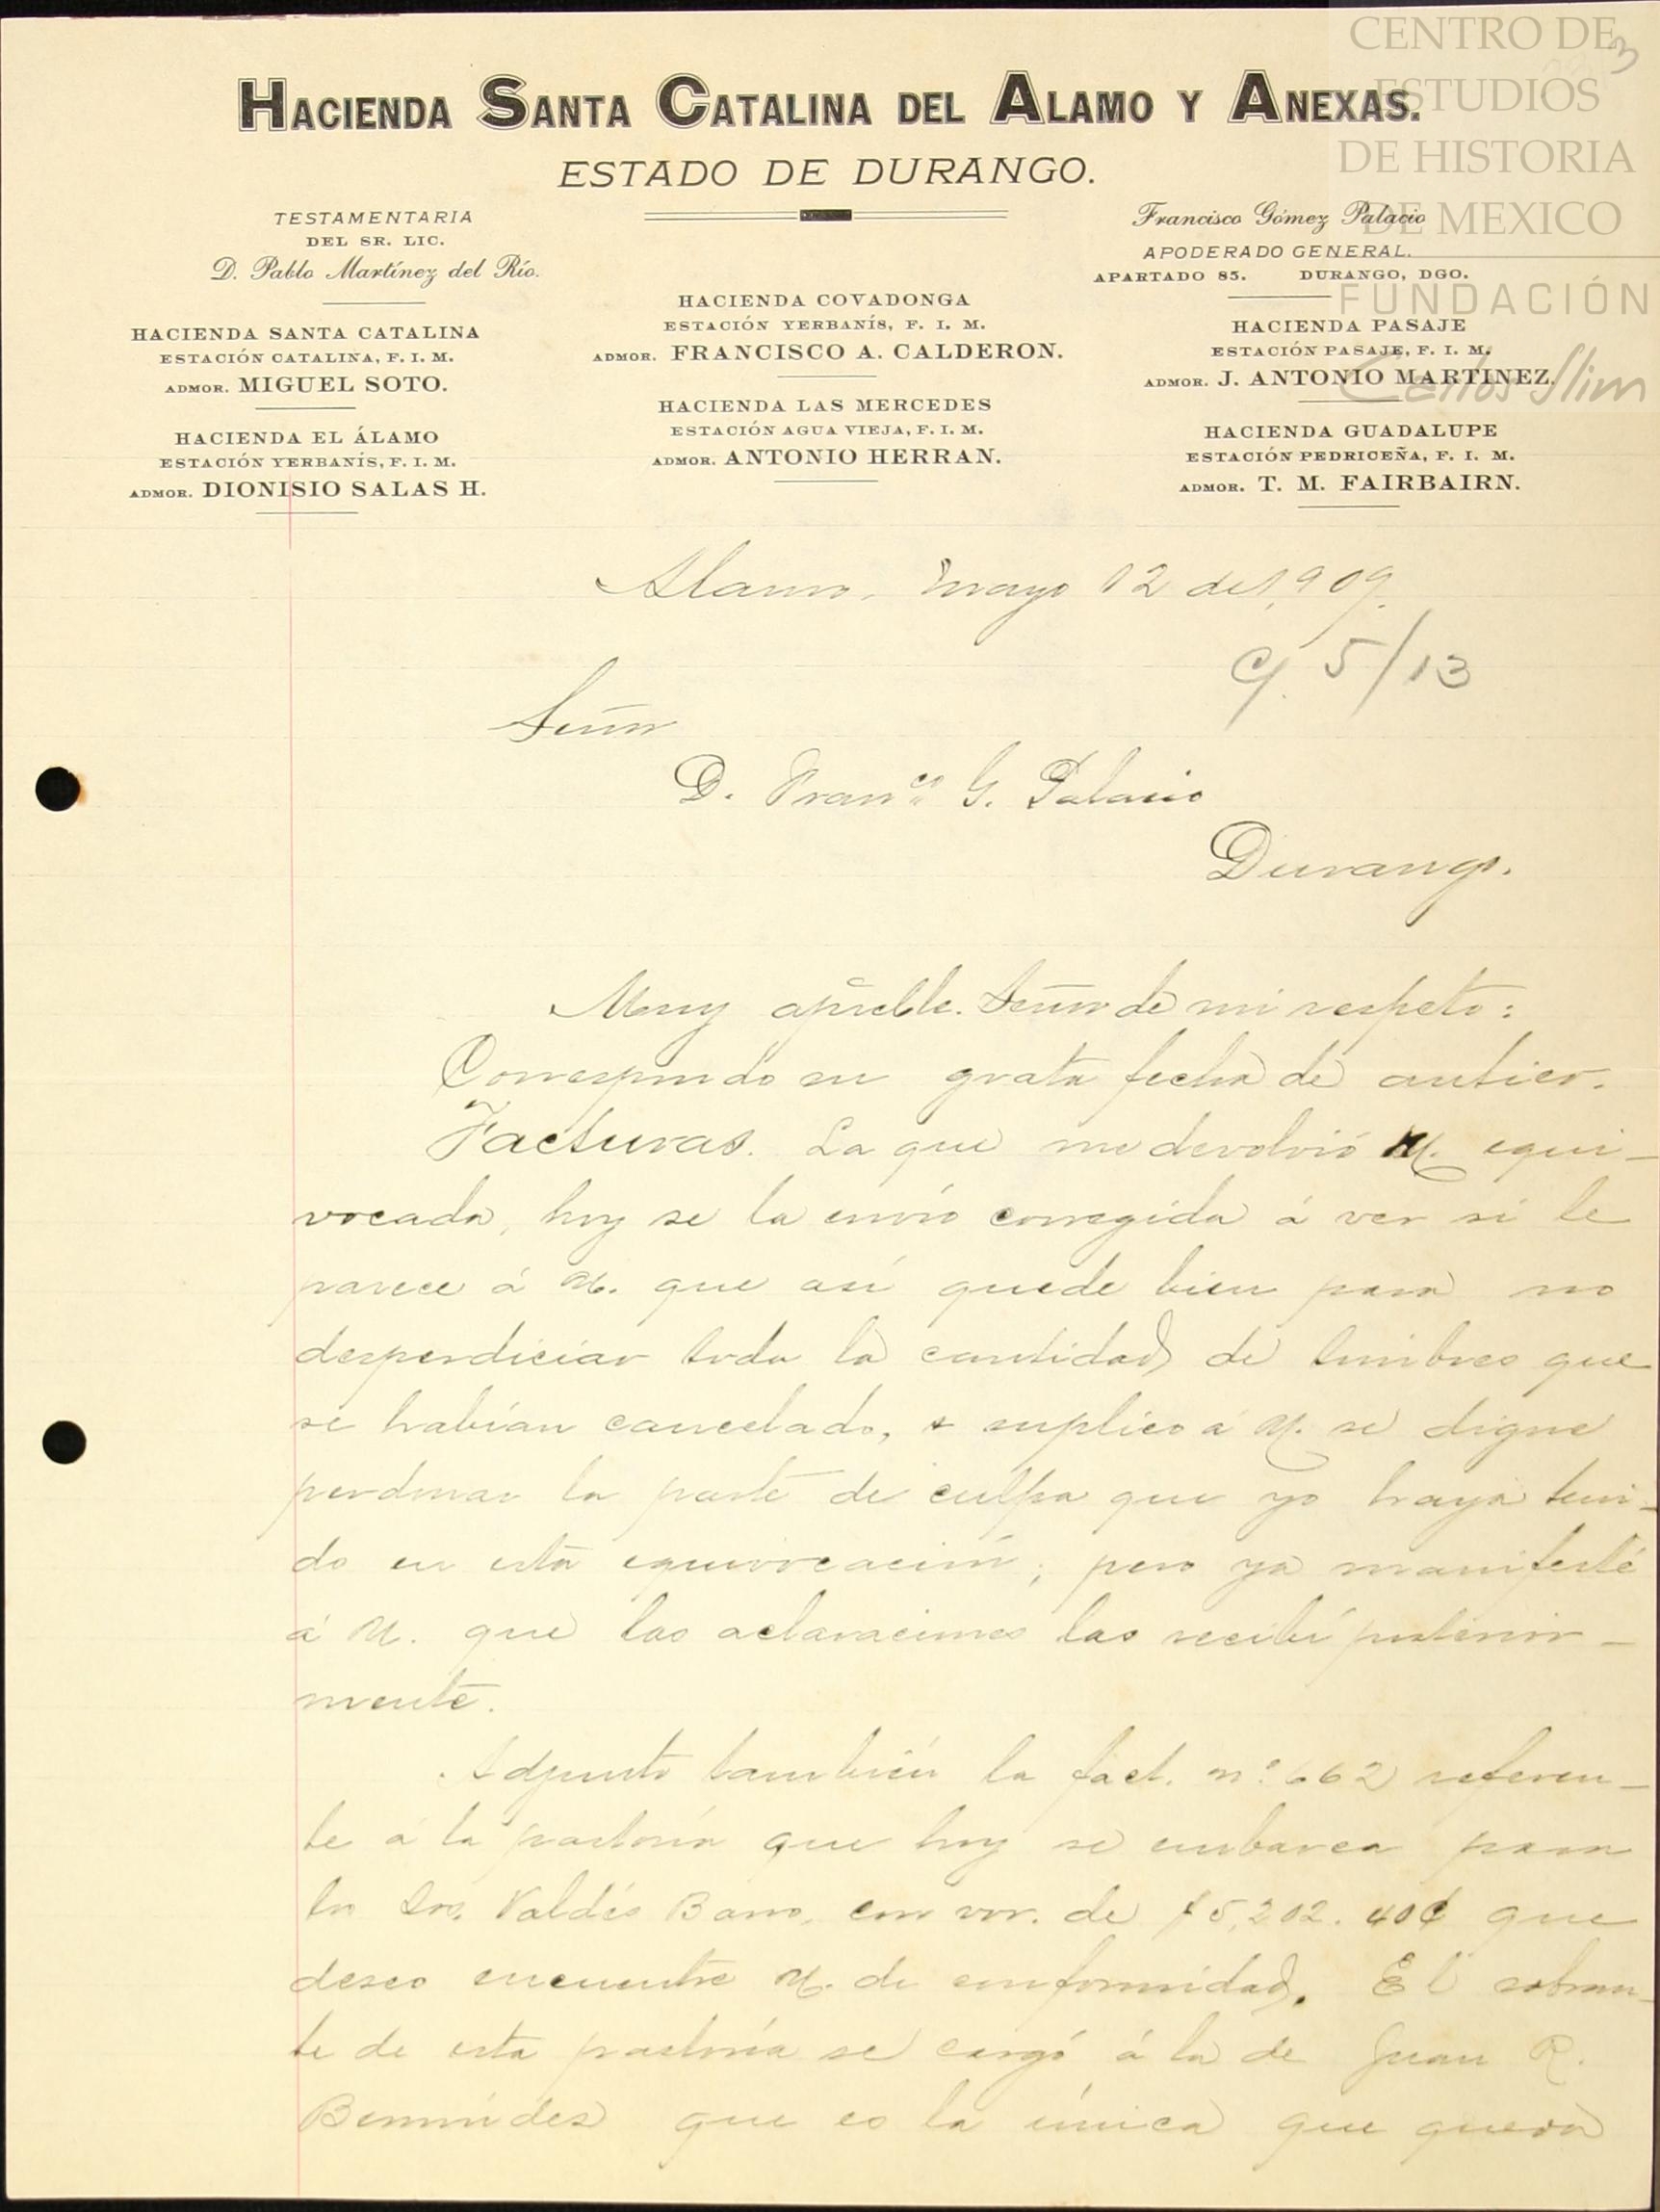 CENTRO DE
ESTUDIOS
DE HISTORIA
DE MEXICO
FUNDACIÓN
Carlos Slim
3
HACIENDA SANTA CATALINA DEL ALAMO Y ANEXAS.
ESTADO DE DURANGO.
TESTAMENTARIA
DEL SR. LIC.
D. Pablo Martínez del Río.
HACIENDA SANTA CATALINA
ESTACIÓN CATALINA, F. I. M.
ADMOR. MIGUEL SOTO.
HACIENDA EL ÁLAMO
ESTACIÓN YERBANÍS, F. I. M.
ADMOR. DIONISIO SALAS H.
HACIENDA COVADONGA
ESTACIÓN YERBANÍS, F. I. M.
ADMOR. FRANCISCO A. CALDERON.
HACIENDA LAS MERCEDES
ESTACIÓN AGUA VIEJA, F. I. M.
ADMOR. ANTONIO HERRAN.
Francisco Gómez Palacio
APODERADO GENERAL.
APARTADO 85. DURANGO, DGO.
HACIENDA PASAJE
ESTACIÓN PASAJE, F. I. M.
ADMOR. J. ANTONIO MARTINEZ.
HACIENDA GUADALUPE
ESTACIÓN PEDRICEÑA, F. I. M.
ADMOR. T. M. FAIRBAIRN.
Alamo, mayo 12 de 1,909.
c/. 5/13
Señor
D. Franco G. Palacio
Durango.
Muy apreble. Señor de mi respeto:
Correspondo su grata fecha de antier.
Facturas. La que me devolvió U. equi-
vocada, hoy se la envío corregida á ver si le
parece á U. que así quede bien para no
desperdiciar toda la cantidad de timbres que
se habían cancelado, suplico á U. se digne
perdonar la parte de culpa que yo haya teni-
do en esta equivocación; pero ya manifesté
á U. que las aclaraciones las recibí posterior-
mente.
Adjunto también la fact. no. 662 referen-
te á la pastoría que hoy se embarca para
los Sres. Valdés Bano. con vor. de $5,202.40¢ que
deseo encuentre U. de conformidad. El sobran-
te de esta pastoría se cargó á la de Juan R.
Bermúdez que es la única que queda